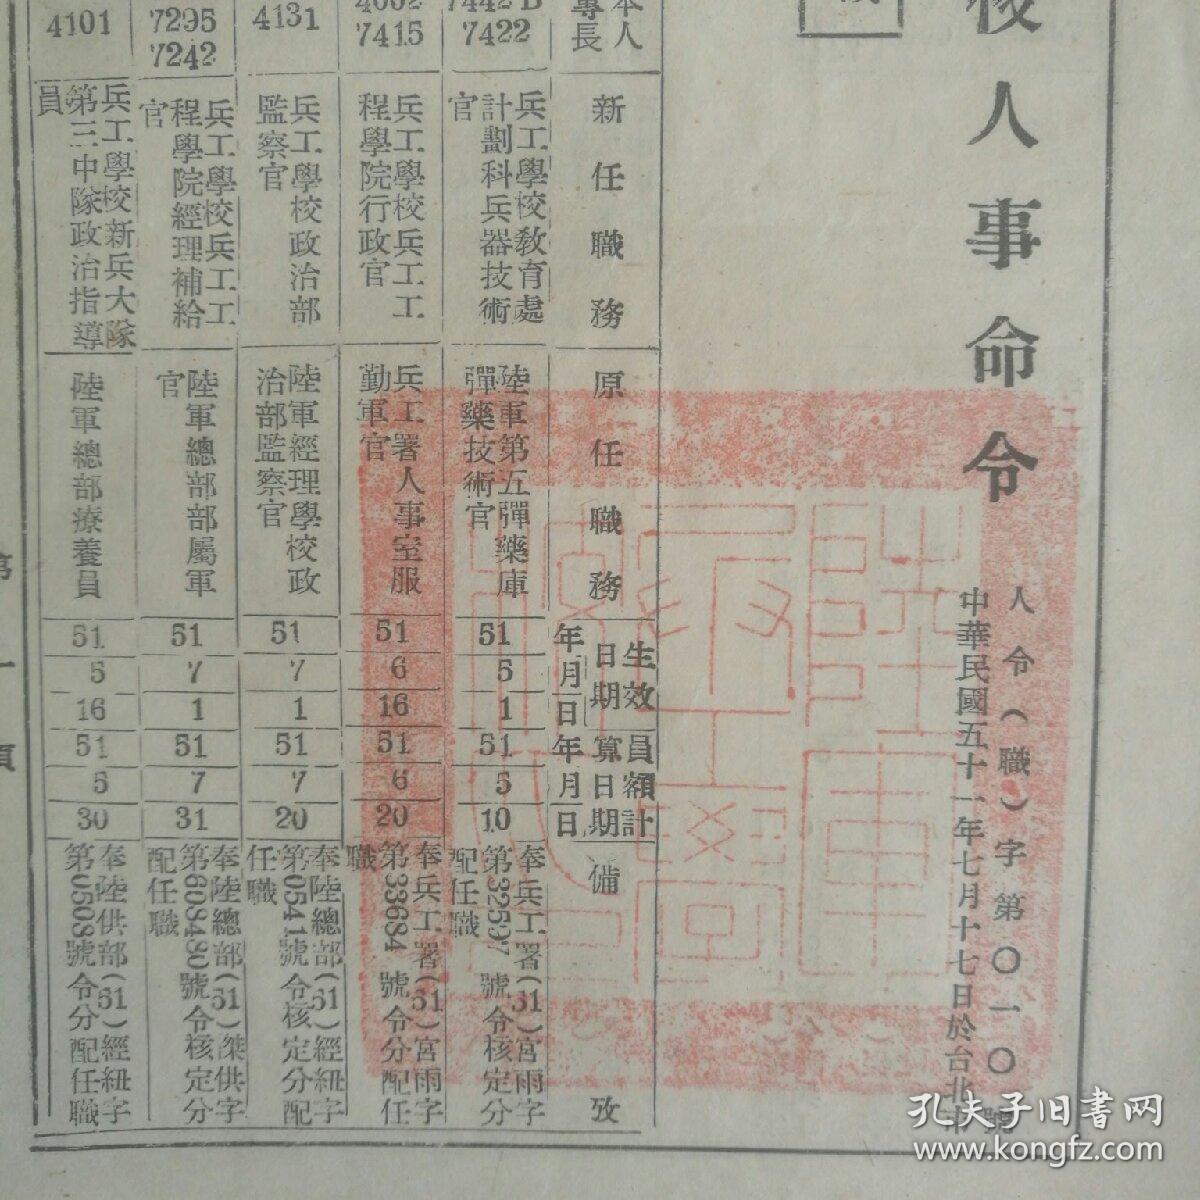 校人事命令
人令(職)字第〇一〇〇號
中華民國五十一年七月十七日於台北市
本人
專長
新任職務
原任職務
生效
日期
年
月
日
員額計
算日期
年
月
日
備
攷
7422
兵工學校教育處
計劃科兵器技術
官
陸軍第五彈藥庫
彈藥技術官
51
5
1
51
5
10
奉兵工署(51)宮雨字
第32597號令核定分
配任職
7415
兵工學校兵工工
程學院行政官
兵工署人事室服
勤軍官
51
6
16
51
6
20
奉兵工署(51)宮雨字
第33684號令分配任
職
4131
兵工學校政治部
監察官
陸軍經理學校政
治部監察官
51
7
1
51
7
20
奉陸總部(51)經紐字
第0541號令核定分配
任職
7295
7242
兵工學校兵工工
程學院經理補給
官
陸軍總部部屬軍
官
51
7
1
51
7
31
奉陸總部(51)傑供字
第603480號令核定分
配任職
4101
兵工學校新兵大隊
第三中隊政治指導
員
陸軍總部療養員
51
5
16
51
5
30
奉陸供部(51)經紐字
第0508號令分配任職
第一頁
孔夫子旧書网
www.kongfz.com